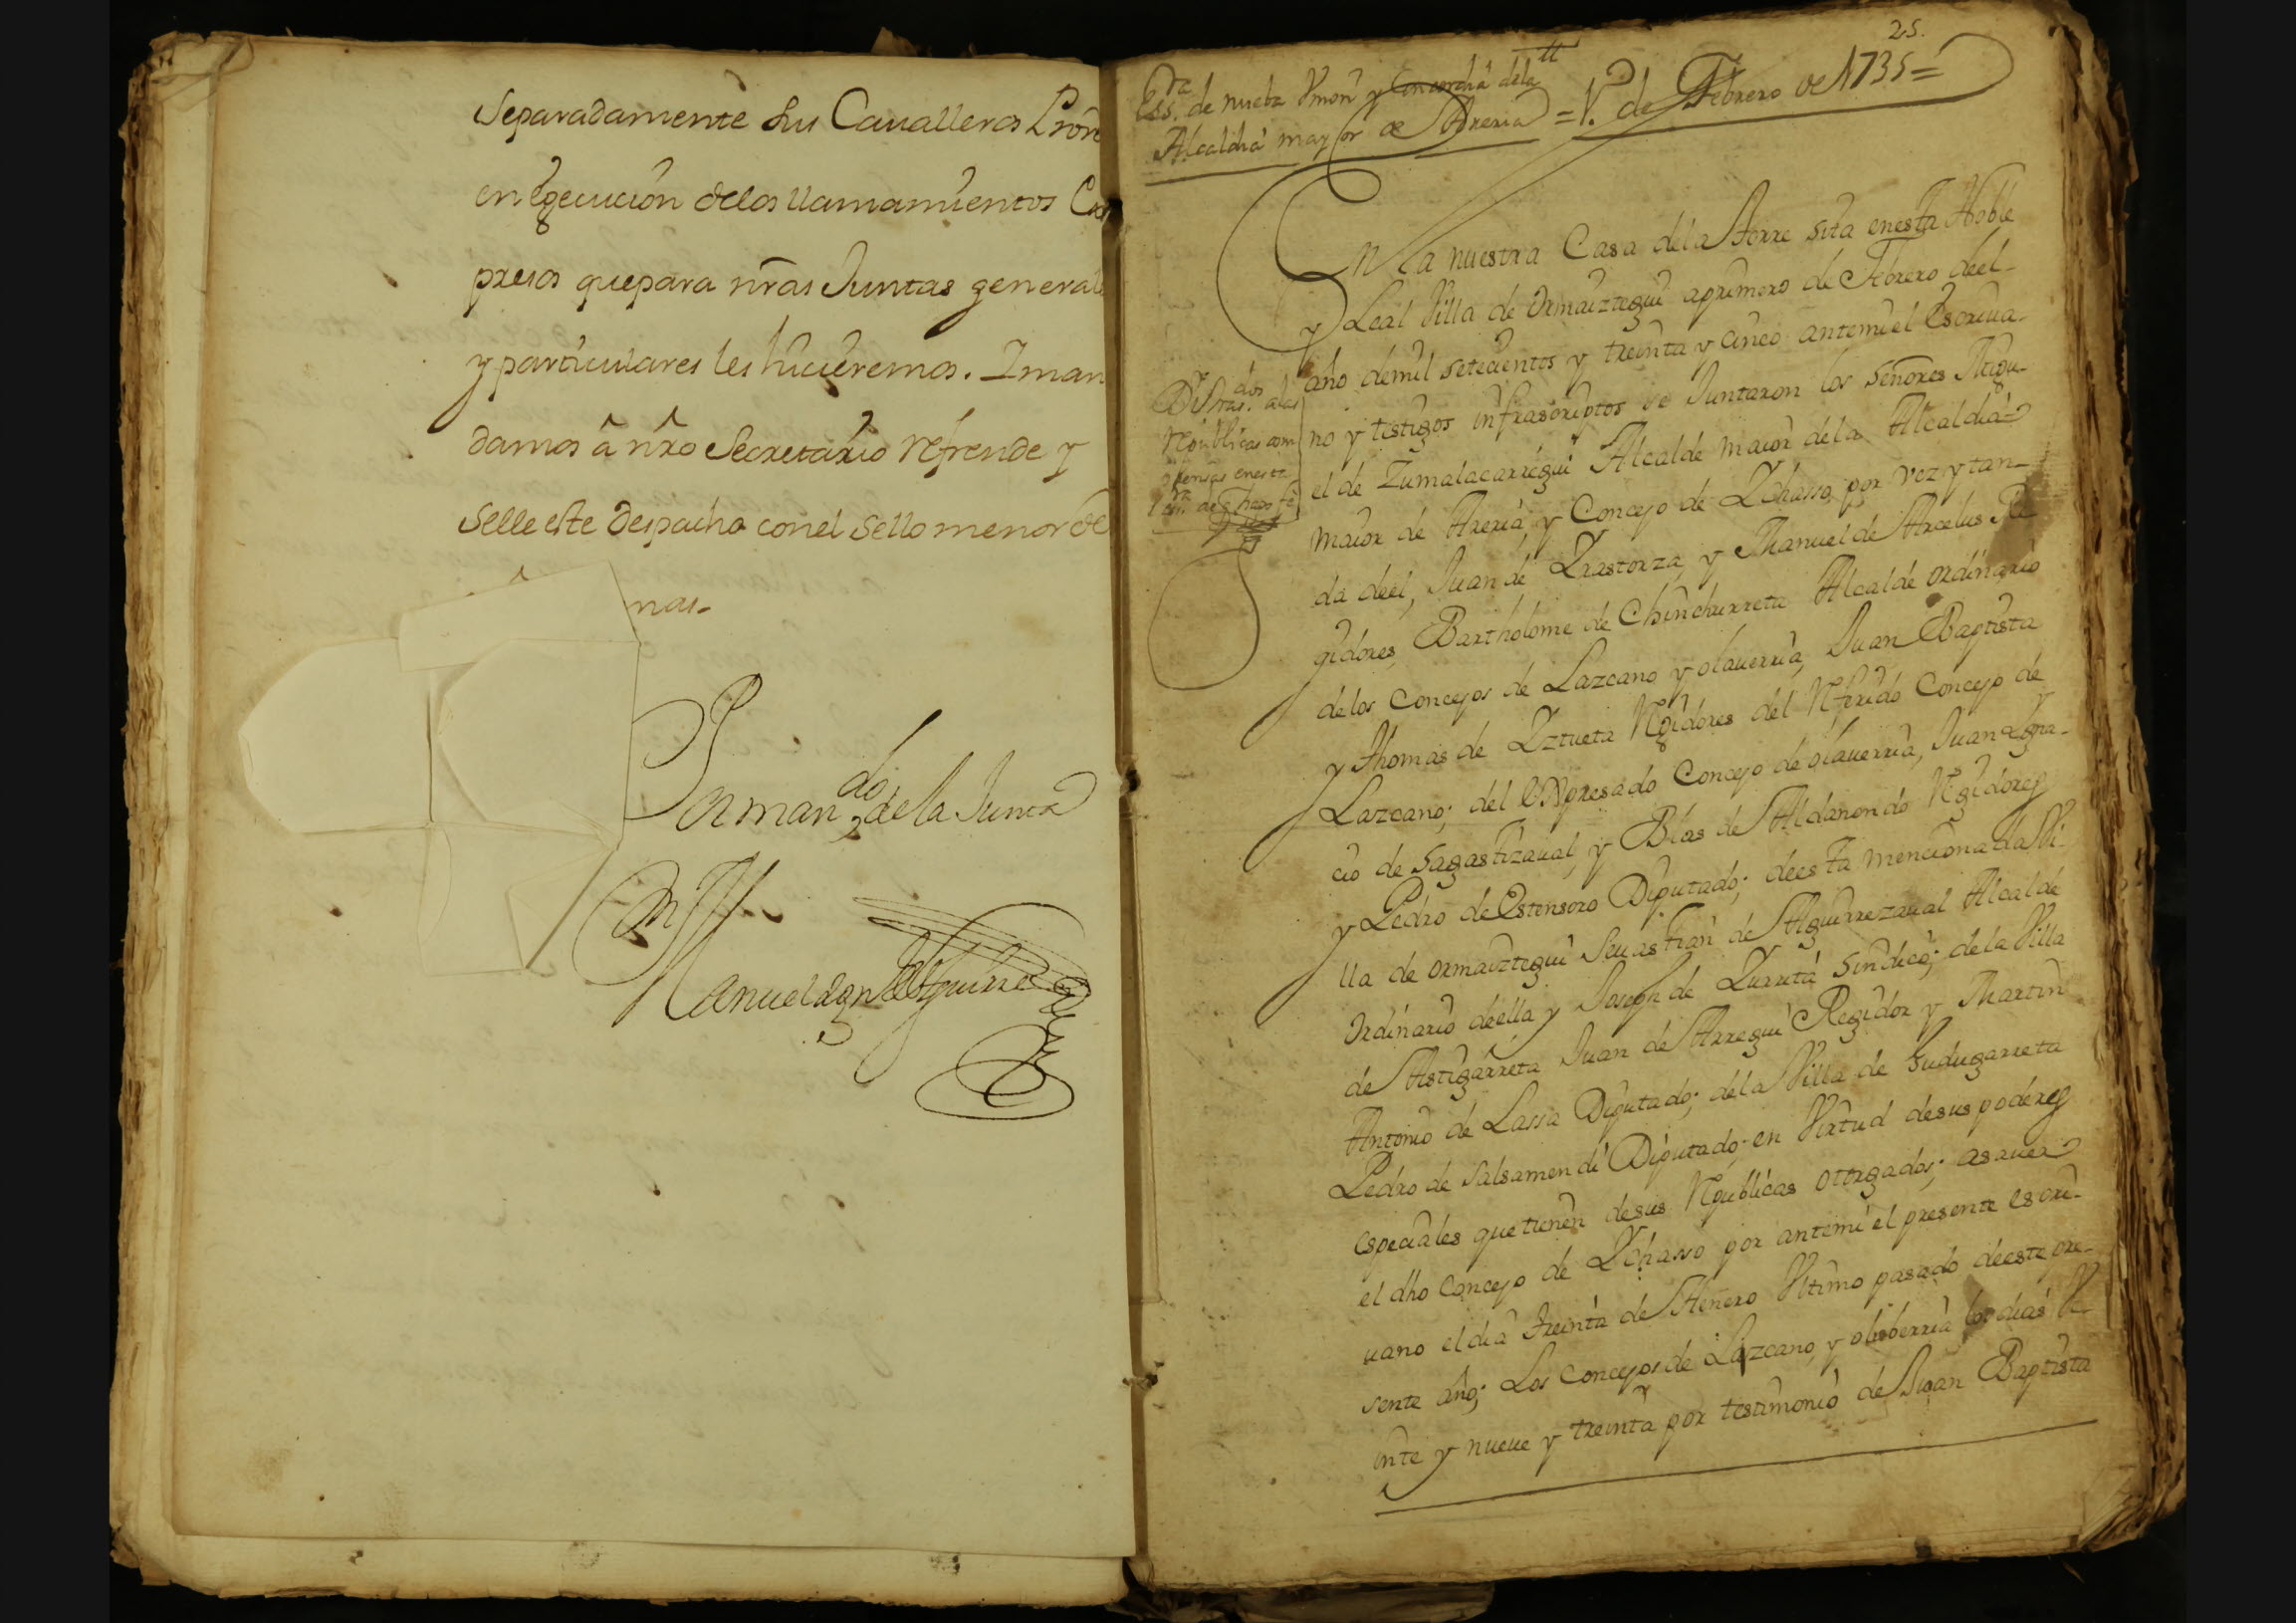 separadamente sus Caualleros Prōn
en egecucion delos llamamientos Ex
presos que para nr̄as Juntas general
y particulares les hicieremos. I man
damos â nr̃o Secretario Refrende y
selle este Despacho con el sello menor de
nas.
Por man.do de la Junta
Manuel Ign.o de Aguirre
25.
Ess.ra de nueba Vnion y Concordia dela
Alcaldia mayor de Areria = 1.º de Febrero de 1735 =
En la nuestra Casa dela Torre sita en esta Noble
y Leal Villa de Ormaiztegui a primero de Febrero de el
año de mil setecientos y treinta y cinco ante mi el Escriua-
no y testigos infrascriptos se Juntaron los señores Migu-
el de Zumalacarregui Alcalde maior de la Alcaldia
maior de Areria, y Concejo de Ychasso, por vez y tan-
da de el, Juan de Yrastorza, y Manuel de Arcelus Re
gidores, Bartholome de Chinchurreta Alcalde ordinario
delos Concejos de Lazcano y olauerria, Juan Baptista
y Thomas de Yztueta Regidores del Referido Concejo de
Lazcano; del expresado Concejo de olauerria, Juan Ygna-
cio de Sagastizaual, y Blas de Aldanondo Regidores
y Pedro de Estensoro Diputado; de esta mencionada Vi-
lla de ormaiztegui Seuastian de Aguirrezaual Alcalde
ordinario de ella y Joseph de Zurrita sindico; de la Villa
de Astigarreta Juan de Arregui Regidor y Martin
Antonio de Lassa Diputado; de la Villa de Gudugarreta
Pedro de Salsamendi Diputado; en Virtud de sus poderes
especiales que tienen de sus Republicas otorgados; asauer
el dho Concejo de Ychasso por ante mi el presente escri-
uano el dia treinta de Henero Vltimo pasado de este pre-
sente año; Los Concejos de Lazcano, y olaberria los dias Ve-
inte y nueue y treinta por testimonio de Juan Baptista
Di tras.dos a las
Republicas com
prensas en esta